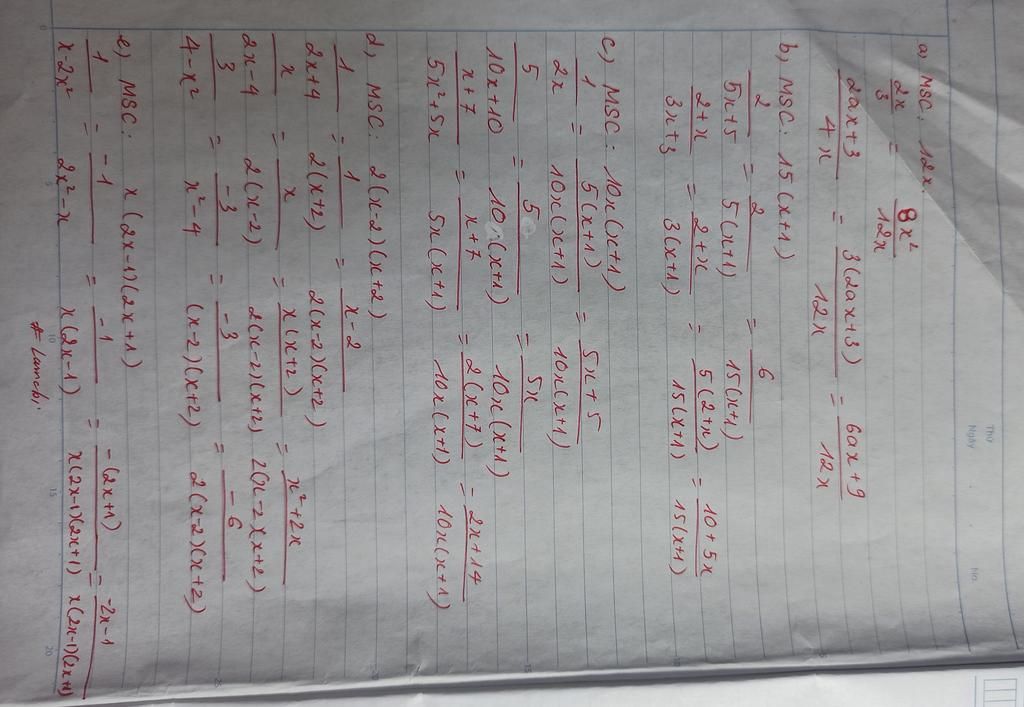 Thứ
Ngày
No.
a) MSC: 12x.
2x/3 = 8x²/12x
2ax+3/4x = 3(2ax+3)/12x = 6ax+9/12x
b) MSC: 15(x+1)
2/5x+5 = 2/5(x+1) = 6/15(x+1)
2+x/3x+3 = 2+x/3(x+1) = 5(2+x)/15(x+1) = 10+5x/15(x+1)
c) MSC: 10x(x+1)
1/2x = 5(x+1)/10x(x+1) = 5x+5/10x(x+1)
5/10x+10 = 5/10(x+1) = 5x/10x(x+1)
x+7/5x²+5x = x+7/5x(x+1) = 2(x+7)/10x(x+1) = 2x+14/10x(x+1)
d) MSC: 2(x-2)(x+2)
1/2x+4 = 1/2(x+2) = x-2/2(x-2)(x+2)
x/2x-4 = x/2(x-2) = x(x+2)/2(x-2)(x+2) = x²+2x/2(x-2)(x+2)
3/4-x² = -3/x²-4 = -3/(x-2)(x+2) = -6/2(x-2)(x+2)
e) MSC: x(2x-1)(2x+1)
1/x-2x² = -1/2x²-x = -1/x(2x-1) = -(2x+1)/x(2x-1)(2x+1) = -2x-1/x(2x-1)(2x+1)